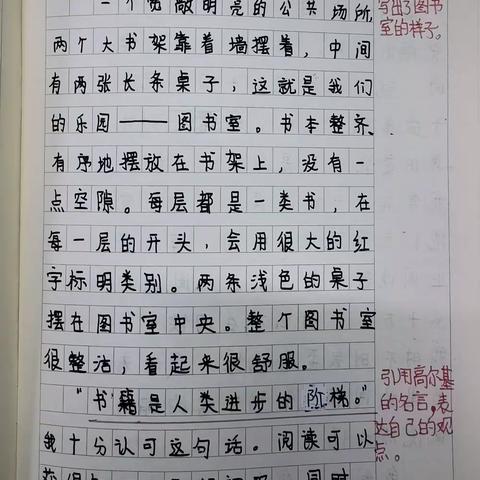 一个宽敞明亮的公共场所
两个大书架靠着墙摆着，中间
有两张长条桌子，这就是我们
的乐园——图书室。书本整齐、
有序地摆放在书架上，没有一
点空隙。每层都是一类书，在
每一层的开头，会用很大的红
字标明类别。两条浅色的桌子
摆在图书室中央。整个图书室
很整洁，看起来很舒服。
“书籍是人类进步的阶梯。”
我十分认可这句话。阅读可以
写出了图书
室的样子。
引用高尔基
的名言，表
达自己的观
点。